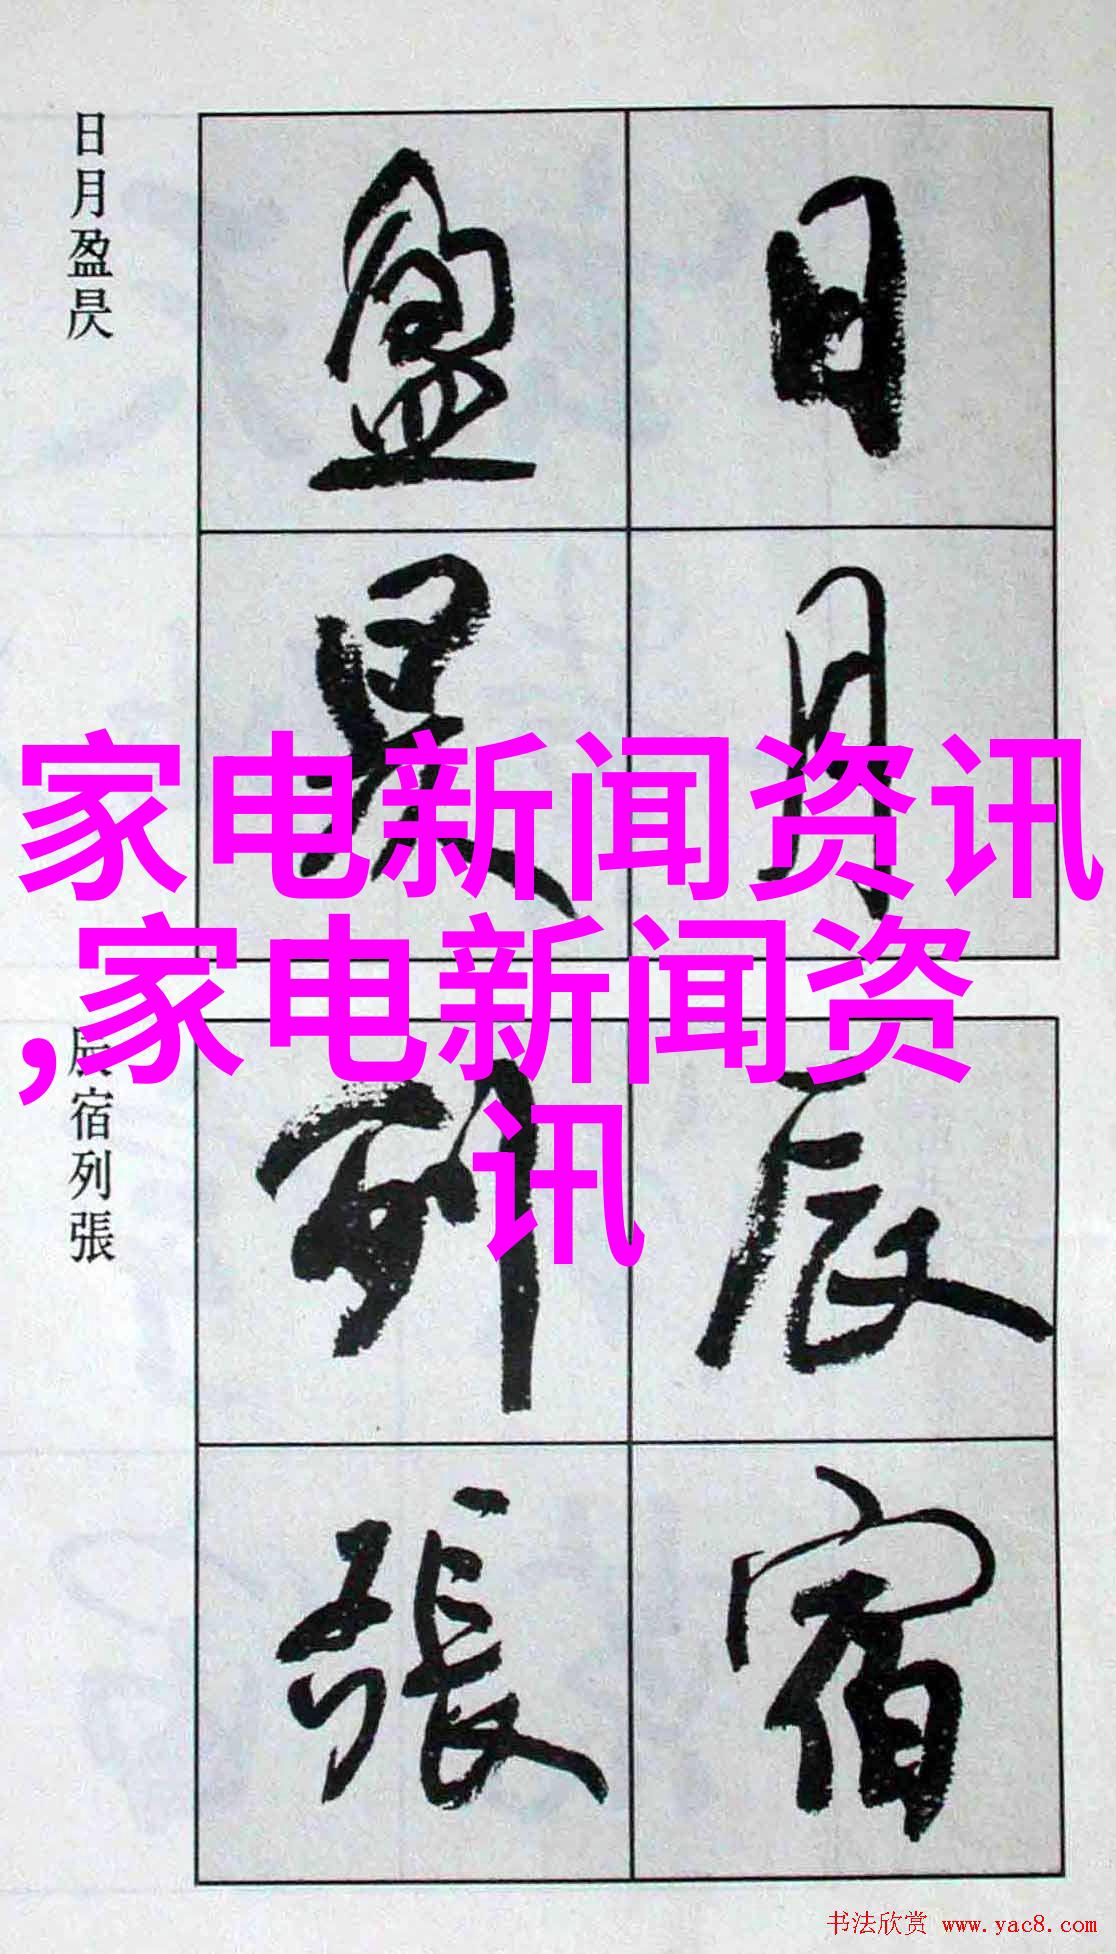 日月
盈昃
日月盈昃
家电新闻资讯
,家电新闻资
讯
辰宿
列張
辰宿列張
书法欣赏 www.yac8.com